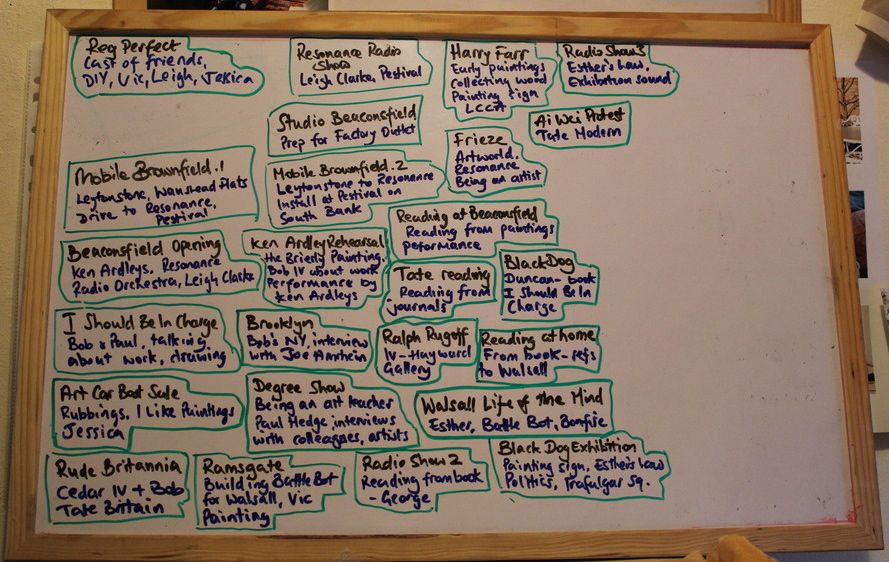 Reg Perfect
Cast of friends,
DIY, Vic, Leigh, Jessica
Resonance Radio
Show
Leigh Clarke, Pestival
Harry Farr
Early paintings
collecting wood
Painting sign
LCCA
Radio Show 3
Esther's Law,
Exhibition sound
Studio Beaconsfield
Prep for Factory Outlet
Ai Wei Protest
Tate Modern
Frieze
Artworld,
Resonance
Being an artist
Mobile Brownfield.1
Leytonstone, Wanshead Flats
Drive to Resonance,
Pestival
Mobile Brownfield.2
Leytonstone to Resonance
Install at Pestival on
South Bank
Reading at Beaconsfield
Reading from paintings
performance
Beaconsfield Opening
Ken Ardleys, Resonance
Radio Orchestra, Leigh Clarke
Ken Ardley Rehearsal
the Brierly Painting.
Bob IV about work
Performance by
Ken Ardleys
Tate reading
Reading from
journals
Black Dog
Duncan - book
I Should Be In
Charge
I Should Be In Charge
Bob & Paul, talking
about work, drawing
Brooklyn
Bob's NY, interview
with Joe Amrhein
Ralph Rugoff
IV - Hayward
Gallery
Reading at home
From book - refs
to Walsall
Art Car Boot Sale
Rubbings, I Like Paintings
Jessica
Degree Show
Being an art teacher
Paul Hedge interviews
with colleagues, artists
Walsall Life of the Mind
Esther, Battle Bot, Bonfire
Rude Britannia
Cedar IV + Bob
Tate Britain
Ramsgate
Building Battle Bot
for Walsall, Vic
Painting
Radio Show 2
Reading from book
- George
Black Dog Exhibition
Painting sign, Esther's Law
Politics, Trafalgar Sq.